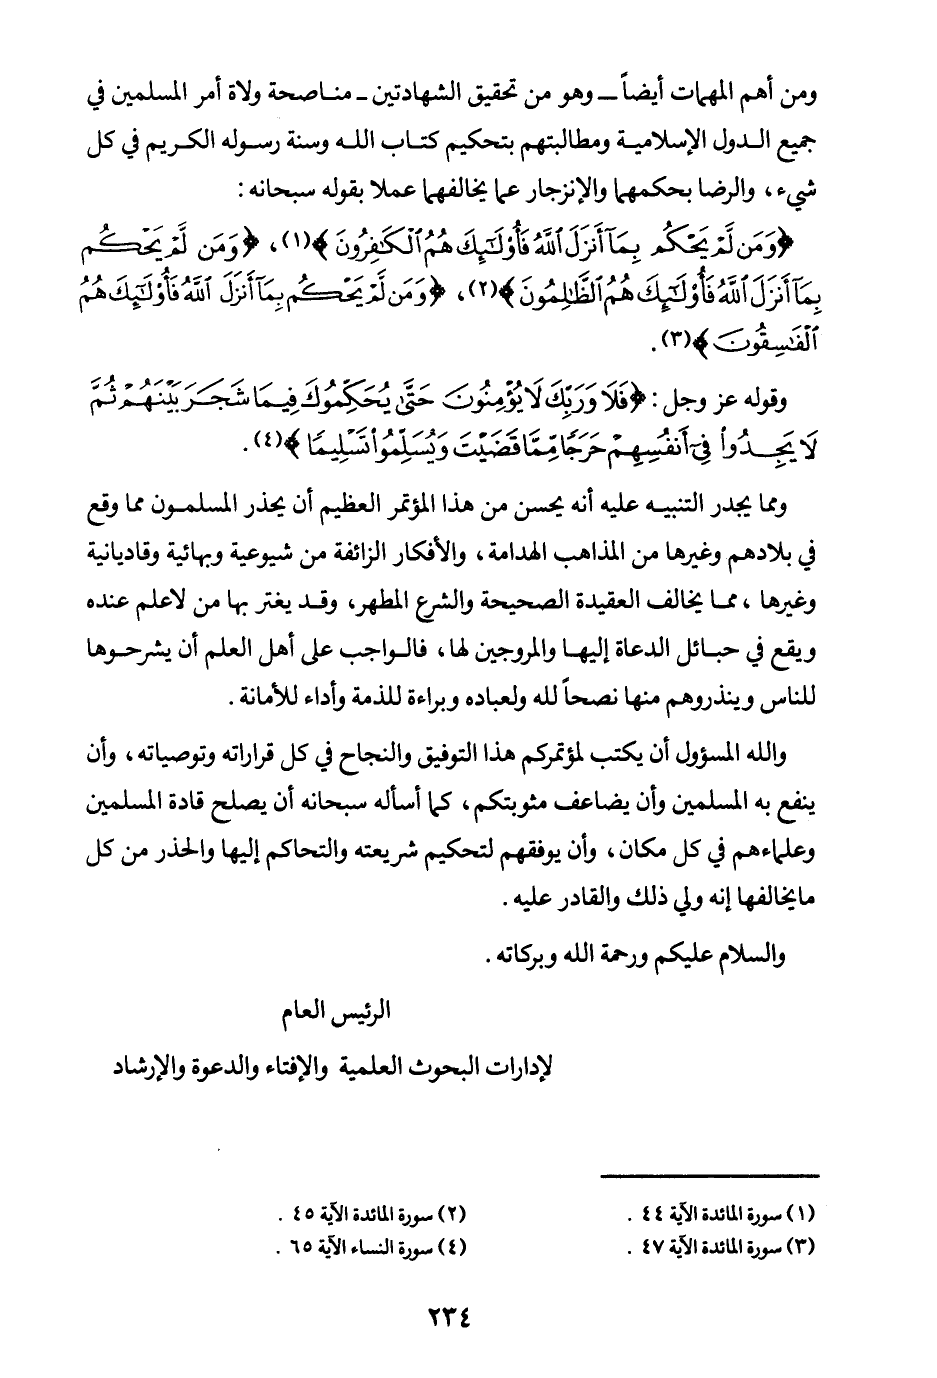 ومن أهم المهمات أيضاً ــ وهو من تحقيق الشهادتين ـ مناصحة ولاة أمر المسلمين في
جميع الدول الإسلامية ومطالبتهم بتحكيم كتاب الله وسنة رسوله الكريم في كل
شيء، والرضا بحكمهما والإنزجار عما يخالفهما عملا بقوله سبحانه :
﴿وَمَن لَّمْ يَحْكُم بِمَآ أَنزَلَ ٱللَّهُ فَأُوْلَٰٓئِكَ هُمُ ٱلْكَٰفِرُونَ﴾(١)، ﴿وَمَن لَّمْ يَحْكُم
بِمَآ أَنزَلَ ٱللَّهُ فَأُوْلَٰٓئِكَ هُمُ ٱلظَّٰلِمُونَ﴾(٢)، ﴿وَمَن لَّمْ يَحْكُم بِمَآ أَنزَلَ ٱللَّهُ فَأُوْلَٰٓئِكَ هُمُ
ٱلْفَٰسِقُونَ﴾(٣).
وقوله عز وجل : ﴿فَلَا وَرَبِّكَ لَا يُؤْمِنُونَ حَتَّىٰ يُحَكِّمُوكَ فِيمَا شَجَرَ بَيْنَهُمْ ثُمَّ
لَا يَجِدُواْ فِىٓ أَنفُسِهِمْ حَرَجًا مِّمَّا قَضَيْتَ وَيُسَلِّمُواْ تَسْلِيمًا﴾(٤).
ومما يجدر التنبيه عليه أنه يحسن من هذا المؤتمر العظيم أن يحذر المسلمون مما وقع
في بلادهم وغيرها من المذاهب الهدامة، والأفكار الزائفة من شيوعية وبهائية وقاديانية
وغيرها ، مما يخالف العقيدة الصحيحة والشرع المطهر، وقد يغتر بها من لاعلم عنده
ويقع في حبائل الدعاة إليها والمروجين لها، فالواجب على أهل العلم أن يشرحوها
للناس وينذروهم منها نصحاً لله ولعباده وبراءة للذمة وأداء للأمانة .
والله المسؤول أن يكتب لمؤتمركم هذا التوفيق والنجاح في كل قراراته وتوصياته، وأن
ينفع به المسلمين وأن يضاعف مثوبتكم، كما أسأله سبحانه أن يصلح قادة المسلمين
وعلماءهم في كل مكان، وأن يوفقهم لتحكيم شريعته والتحاكم إليها والحذر من كل
مايخالفها إنه ولي ذلك والقادر عليه .
والسلام عليكم ورحمة الله وبركاته .
الرئيس العام
لإدارات البحوث العلمية والإفتاء والدعوة والإرشاد
(١) سورة المائدة الآية ٤٤ . (٢) سورة المائدة الآية ٤٥ .
(٣) سورة المائدة الآية ٤٧ . (٤) سورة النساء الآية ٦٥ .
٢٣٤